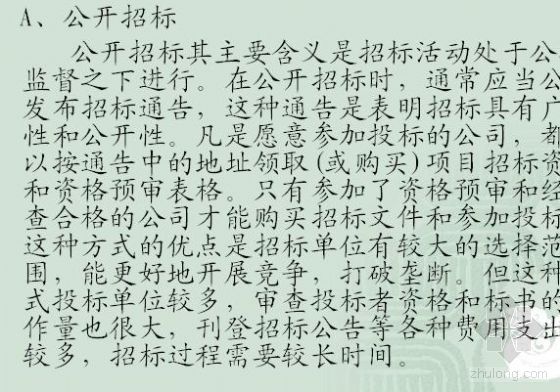 A、公开招标
公开招标其主要含义是招标活动处于公
监督之下进行。在公开招标时，通常应当公
发布招标通告，这种通告是表明招标具有广
性和公开性。凡是愿意参加投标的公司，都
以按通告中的地址领取(或购买)项目招标资
和资格预审表格。只有参加了资格预审和经
查合格的公司才能购买招标文件和参加投标
这种方式的优点是招标单位有较大的选择范
围，能更好地开展竞争，打破垄断。但这种
式投标单位较多，审查投标者资格和标书的
作量也很大，刊登招标公告等各种费用支出
较多，招标过程需要较长时间。
zhulong.com